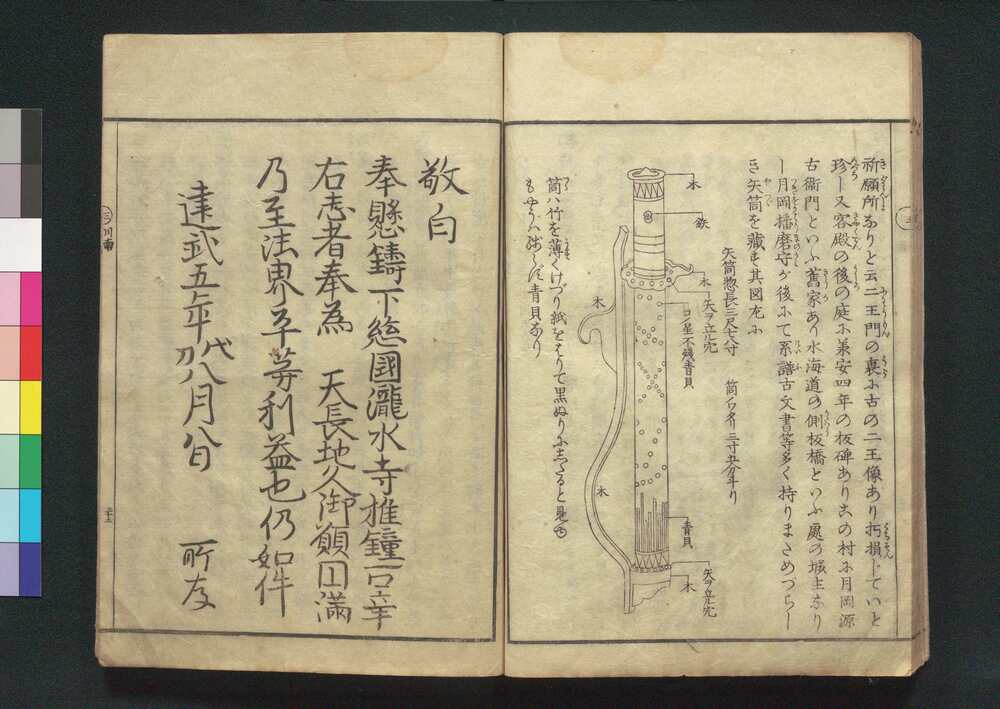 祈願所なりと云二王門の裏に古の二王像あり朽損じていと
珍し又客殿の後の庭に兼安四年の板碑ありこの村に月岡源
古衛門といふ舊家あり水海道の側板橋といふ處の城主なり
し月岡播磨守が後にて系譜古文書等多く持りまためづらし
き矢筒を藏す其図左に
矢筒惣長三尺七寸
筒ノワタリ二寸五分斗り
木
鉄
木
矢ヲ立ル穴
コノ星不残青貝
木
木
青貝
矢ヲ立ル穴
木
筒ハ竹を薄くけづり紙をはりて黒ぬりにしたると見ゆ
青貝なり
敬白
奉懸鑄下総國瀧水寺推鐘一口辛
右志者奉為 天長地久御願円満
乃至法界平等利益也仍如件
建武五年八月八日